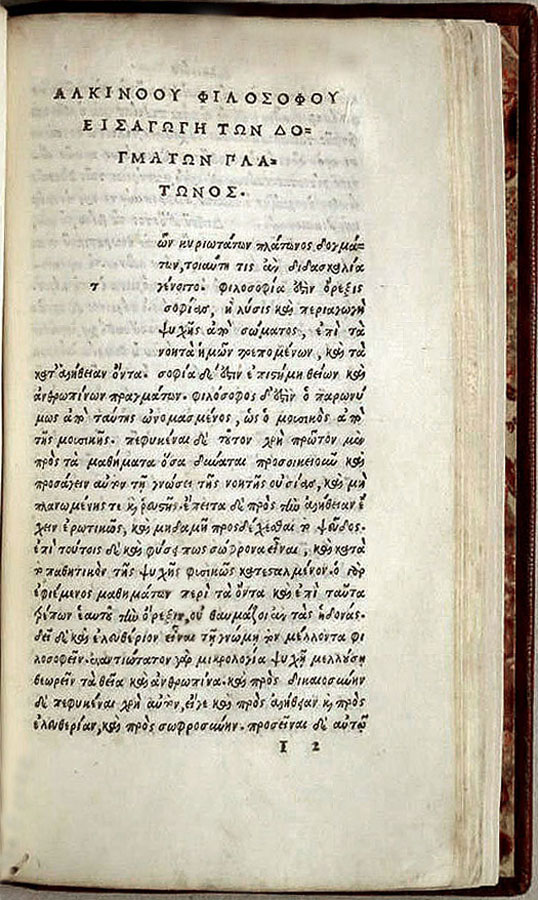 ΑΛΚΙΝΟΟΥ ΦΙΛΟΣΟΦΟΥ
ΕΙΣΑΓΩΓΗ ΤΩΝ ΔΟ=
ΓΜΑΤΩΝ ΠΛΑ=
ΤΩΝΟΣ.
ῶν κυριωτάτων πλάτωνος δογμά=
των, τοιαύτη τις ἂν διδασκαλία
τ γένοιτο. φιλοσοφία ἐστὶν ὄρεξις
σοφίας, ἢ λύσις καὶ περιαγωγὴ
ψυχῆς ἀπὸ σώματος, ἐπὶ τὰ
νοητὰ ἡμῶν τρεπομένων, καὶ τὰ
κατ' ἀλήθειαν ὄντα. σοφία δὲ ἐστὶν ἐπιστήμη θείων καὶ
ἀνθρωπίνων πραγμάτων. φιλόσοφος δ' ἐστὶν ὁ παρωνύ
μως ἀπὸ ταύτης ὠνομασμένος, ὡς ὁ μουσικὸς ἀπὸ
τῆς μουσικῆς. πεφυκέναι δὲ τοῦτον χρὴ πρῶτον μὲν
πρὸς τὰ μαθήματα ὅσα δύναται προσοικειοῦν καὶ
προσάγειν αὐτὸν τῇ γνώσει τῆς νοητῆς οὐσίας, καὶ μὴ
πλανωμένης τε καὶ ῥευστῆς. ἔπειτα δὲ πρὸς τὴν ἀλήθειαν ἔ
χειν ἐρωτικῶς, καὶ μηδαμῆ προσδέχεσθαι τὸ ψεῦδος.
ἐπὶ τούτοις δὲ καὶ φύσει πως σώφρονα εἶναι, καὶ κατὰ
τὸ παθητικὸν τῆς ψυχῆς φυσικῶς κατεσταλμένον. ὁ γὰρ
ἐφιέμενος μαθημάτων περὶ τὰ ὄντα καὶ ἐπὶ ταῦτα
τρέπων ἑαυτοῦ τὴν ὄρεξιν, οὐ θαυμάζοι ἂν τὰς ἡδονάς.
δεῖ δὲ καὶ ἐλευθέριον εἶναι τῇ γνώμῃ τὸν μέλλοντα φι
λοσοφεῖν. ἐναντιώτατον γὰρ μικρολογία ψυχῇ μελλούσῃ
θεωρεῖν τὰ θεῖα καὶ ἀνθρώπινα. καὶ πρὸς δικαιοσύνην
δὲ πεφυκέναι χρὴ αὐτὸν, εἴγε καὶ πρὸς ἀλήθειαν καὶ πρὸς
ἐλευθερίαν, καὶ πρὸς σωφροσύνην. προσεῖναι δὲ αὐτῷ
I 2